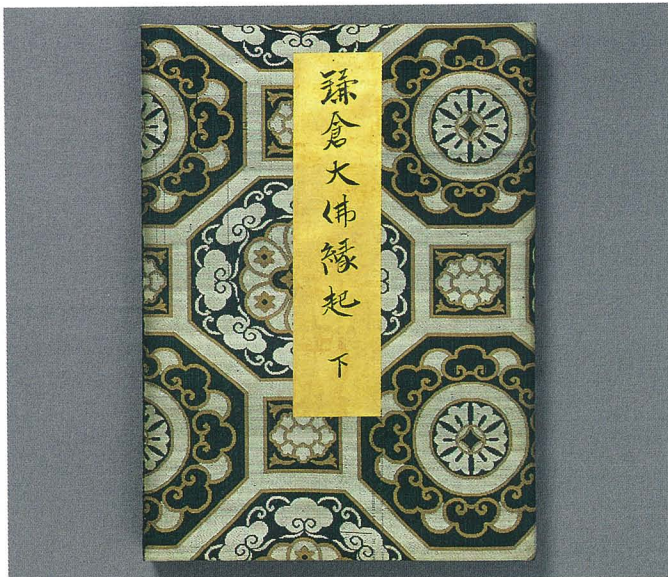 鎌倉大佛縁起 下